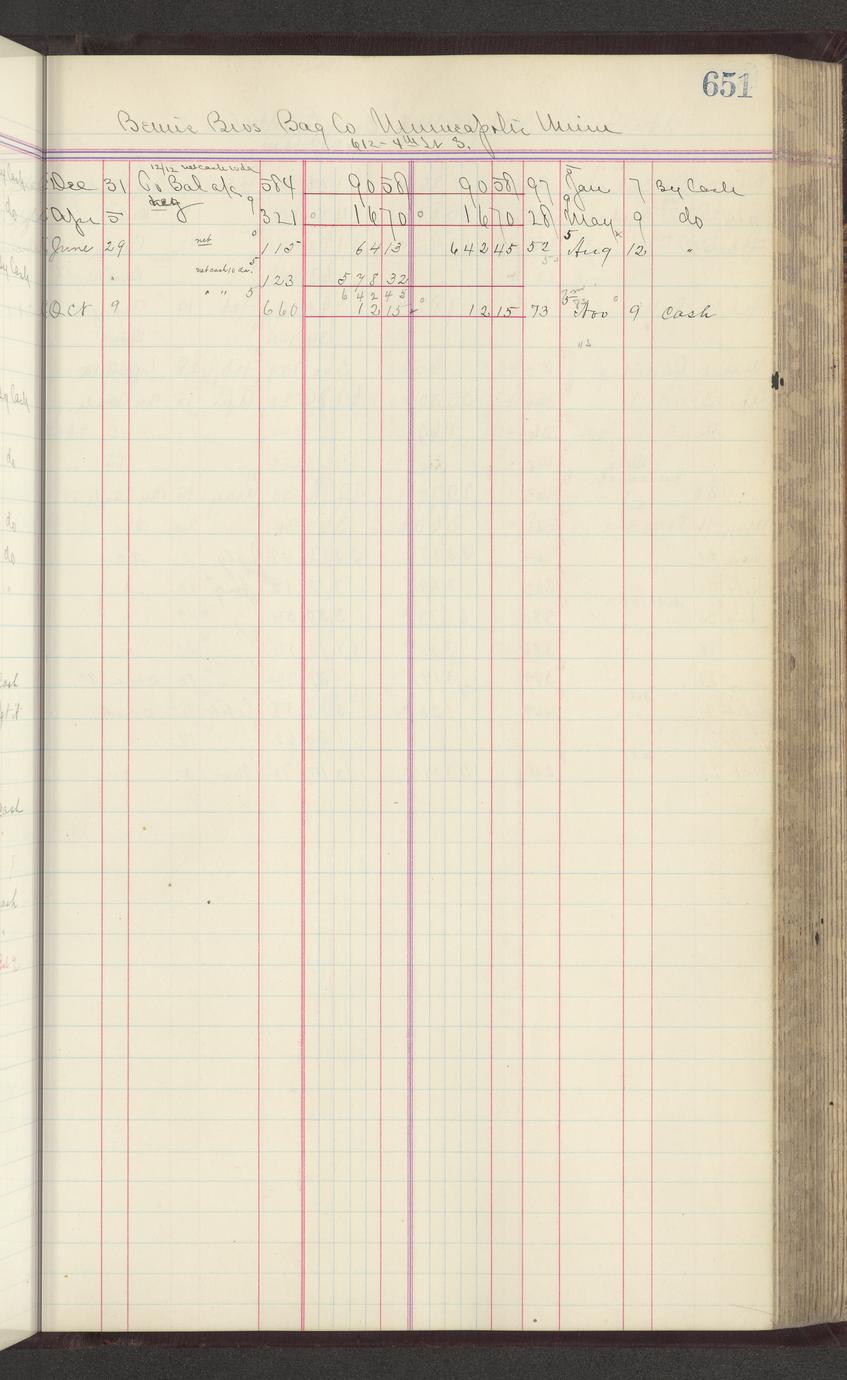 651
Bemis Bros Bag Co Minneapolis Minn
612 - 4th St S.
12/12 net cash 10 da
Dec 31 To Bal a/c 584 90 58 90 58 97 Jan 7 By Cash
Apr 5 321 16 70 16 70 28 May 9 do
June 29 net 115 64 13 642 45 52 Aug 12 "
" net cash 10 da. 123 578 32
" " 5 642 45
Oct 9 660 12 15 12 15 73 Nov 9 Cash